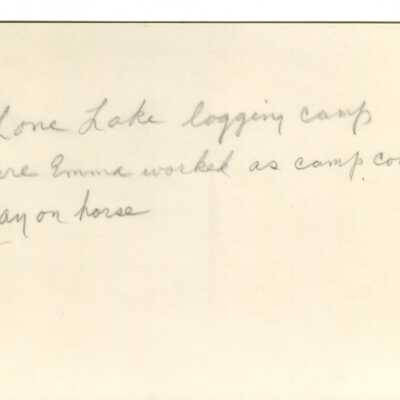 Lone Lake logging camp
ere Emma worked as camp coo
ay on horse